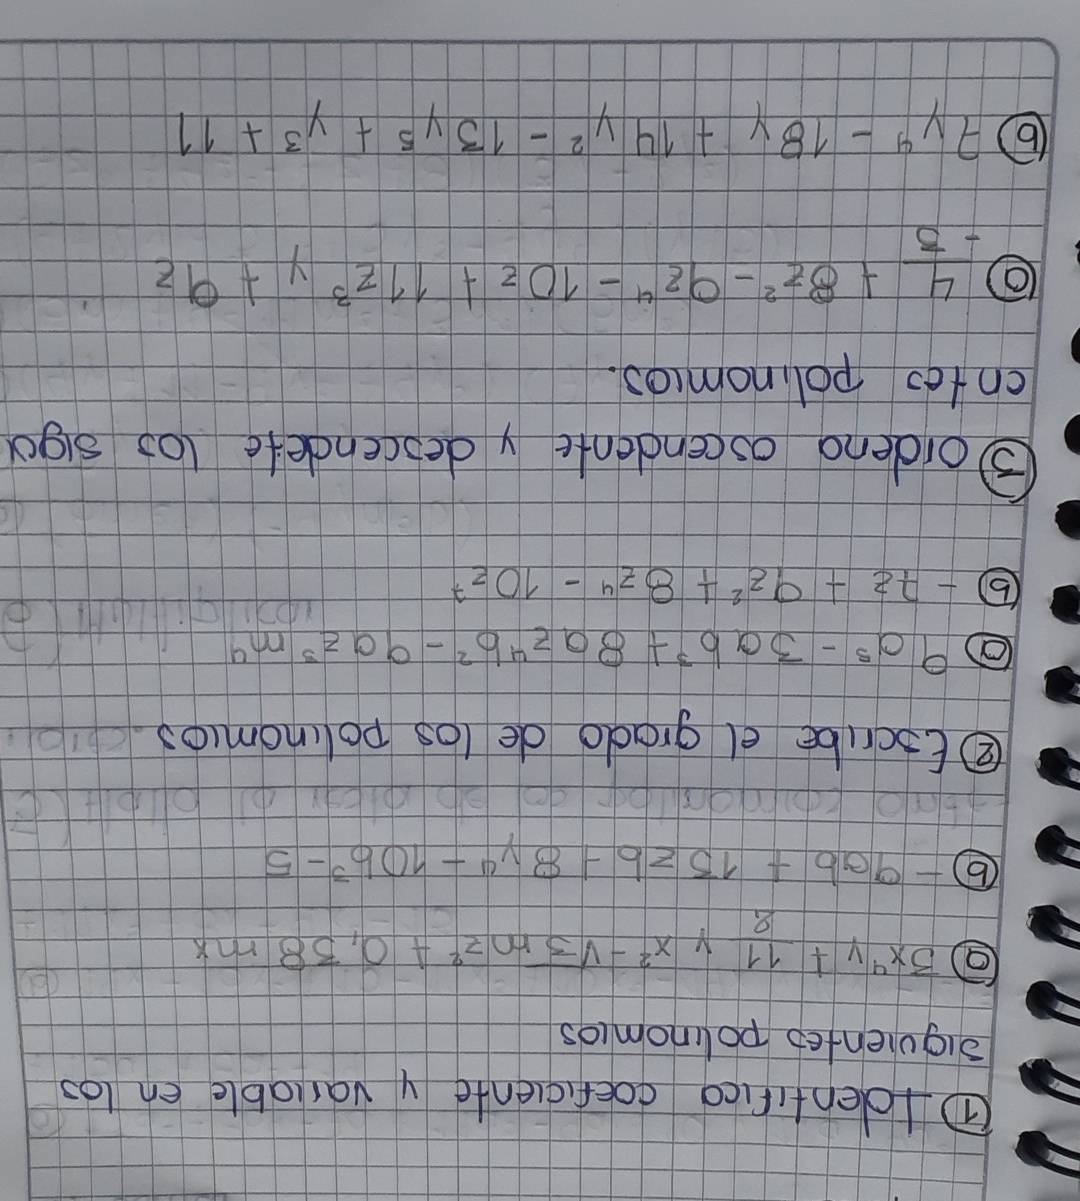 ① Identifica coeficiente y variable en los
siguientes polinomios
ⓐ 5x⁴y + 11/2 y x² - √3mz² + 0,38 mx
ⓑ - 9ab + 15zb + 8y⁴ - 10b³ - 5
② Escribe el grado de los polinomios
ⓐ 9a⁵ - 3ab³ + 8az⁴b² - 9az³m⁴
ⓑ - 7z + 9z² + 8z⁴ - 10z⁷
③ Ordena ascendente y descendete los sigui
entes polinomios.
ⓐ 4/-5 + 8z² - 9z⁴ - 10z + 11z³ y + 9z
ⓑ 7y⁴ - 18y + 14y² - 13y⁵ + y³ + 11